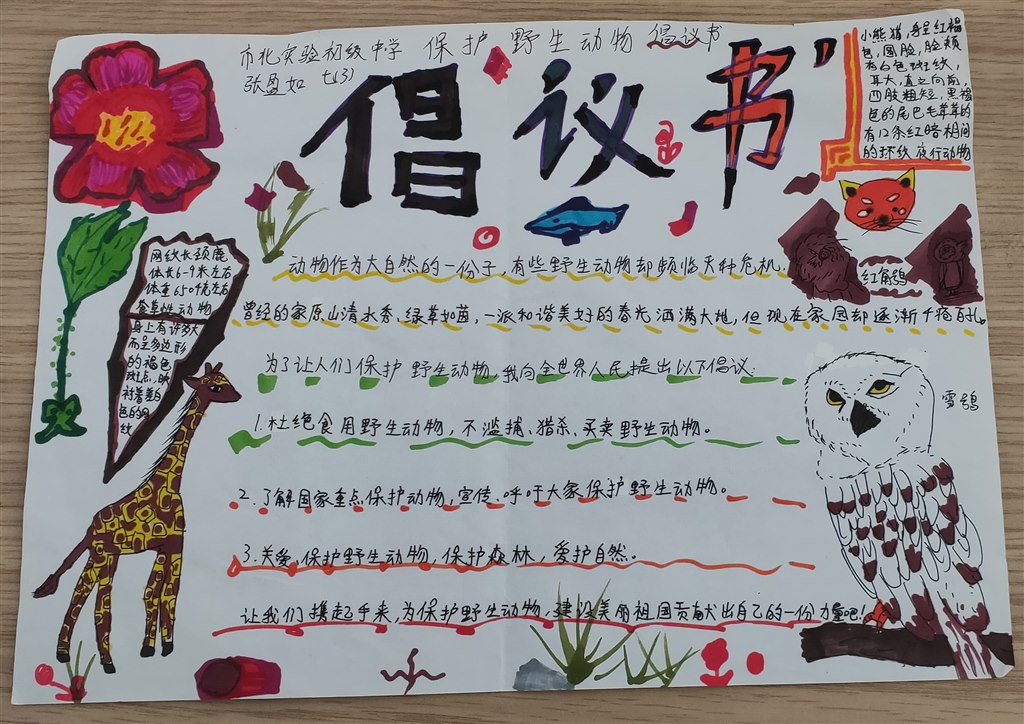 市北实验初级中学 保护野生动物倡议书
张盈如 七(3)
倡议书
小熊猫,身呈红褐
色,圆脸,脸颊
有白色斑纹,
耳大,直立向前,
四肢粗短,黑褐
色的尾巴毛茸茸的
有12条红暗相间
的环纹 夜行动物
红角鸮
网纹长颈鹿
体长6-9米左右
体重650千克左右
食草性动物
身上有许多大
而呈多边形
的褐色
斑点,映
衬着差白
色的网
纹
动物作为大自然的一份子,有些野生动物却频临灭种危机.
曾经的家原山清水秀、绿草如茵,一派和谐美好的春光洒满大地,但现在家园却逐渐千疮百孔。
为了让人们保护野生动物,我向全世界人民提出以下倡议:
1.杜绝食用野生动物,不滥捕、猎杀、买卖野生动物。
雪鸮
2.了解国家重点保护动物,宣传、呼吁大家保护野生动物。
3.关爱、保护野生动物,保护森林,爱护自然。
让我们携起手来,为保护野生动物,建设美丽祖国贡献出自己的一份力量吧!